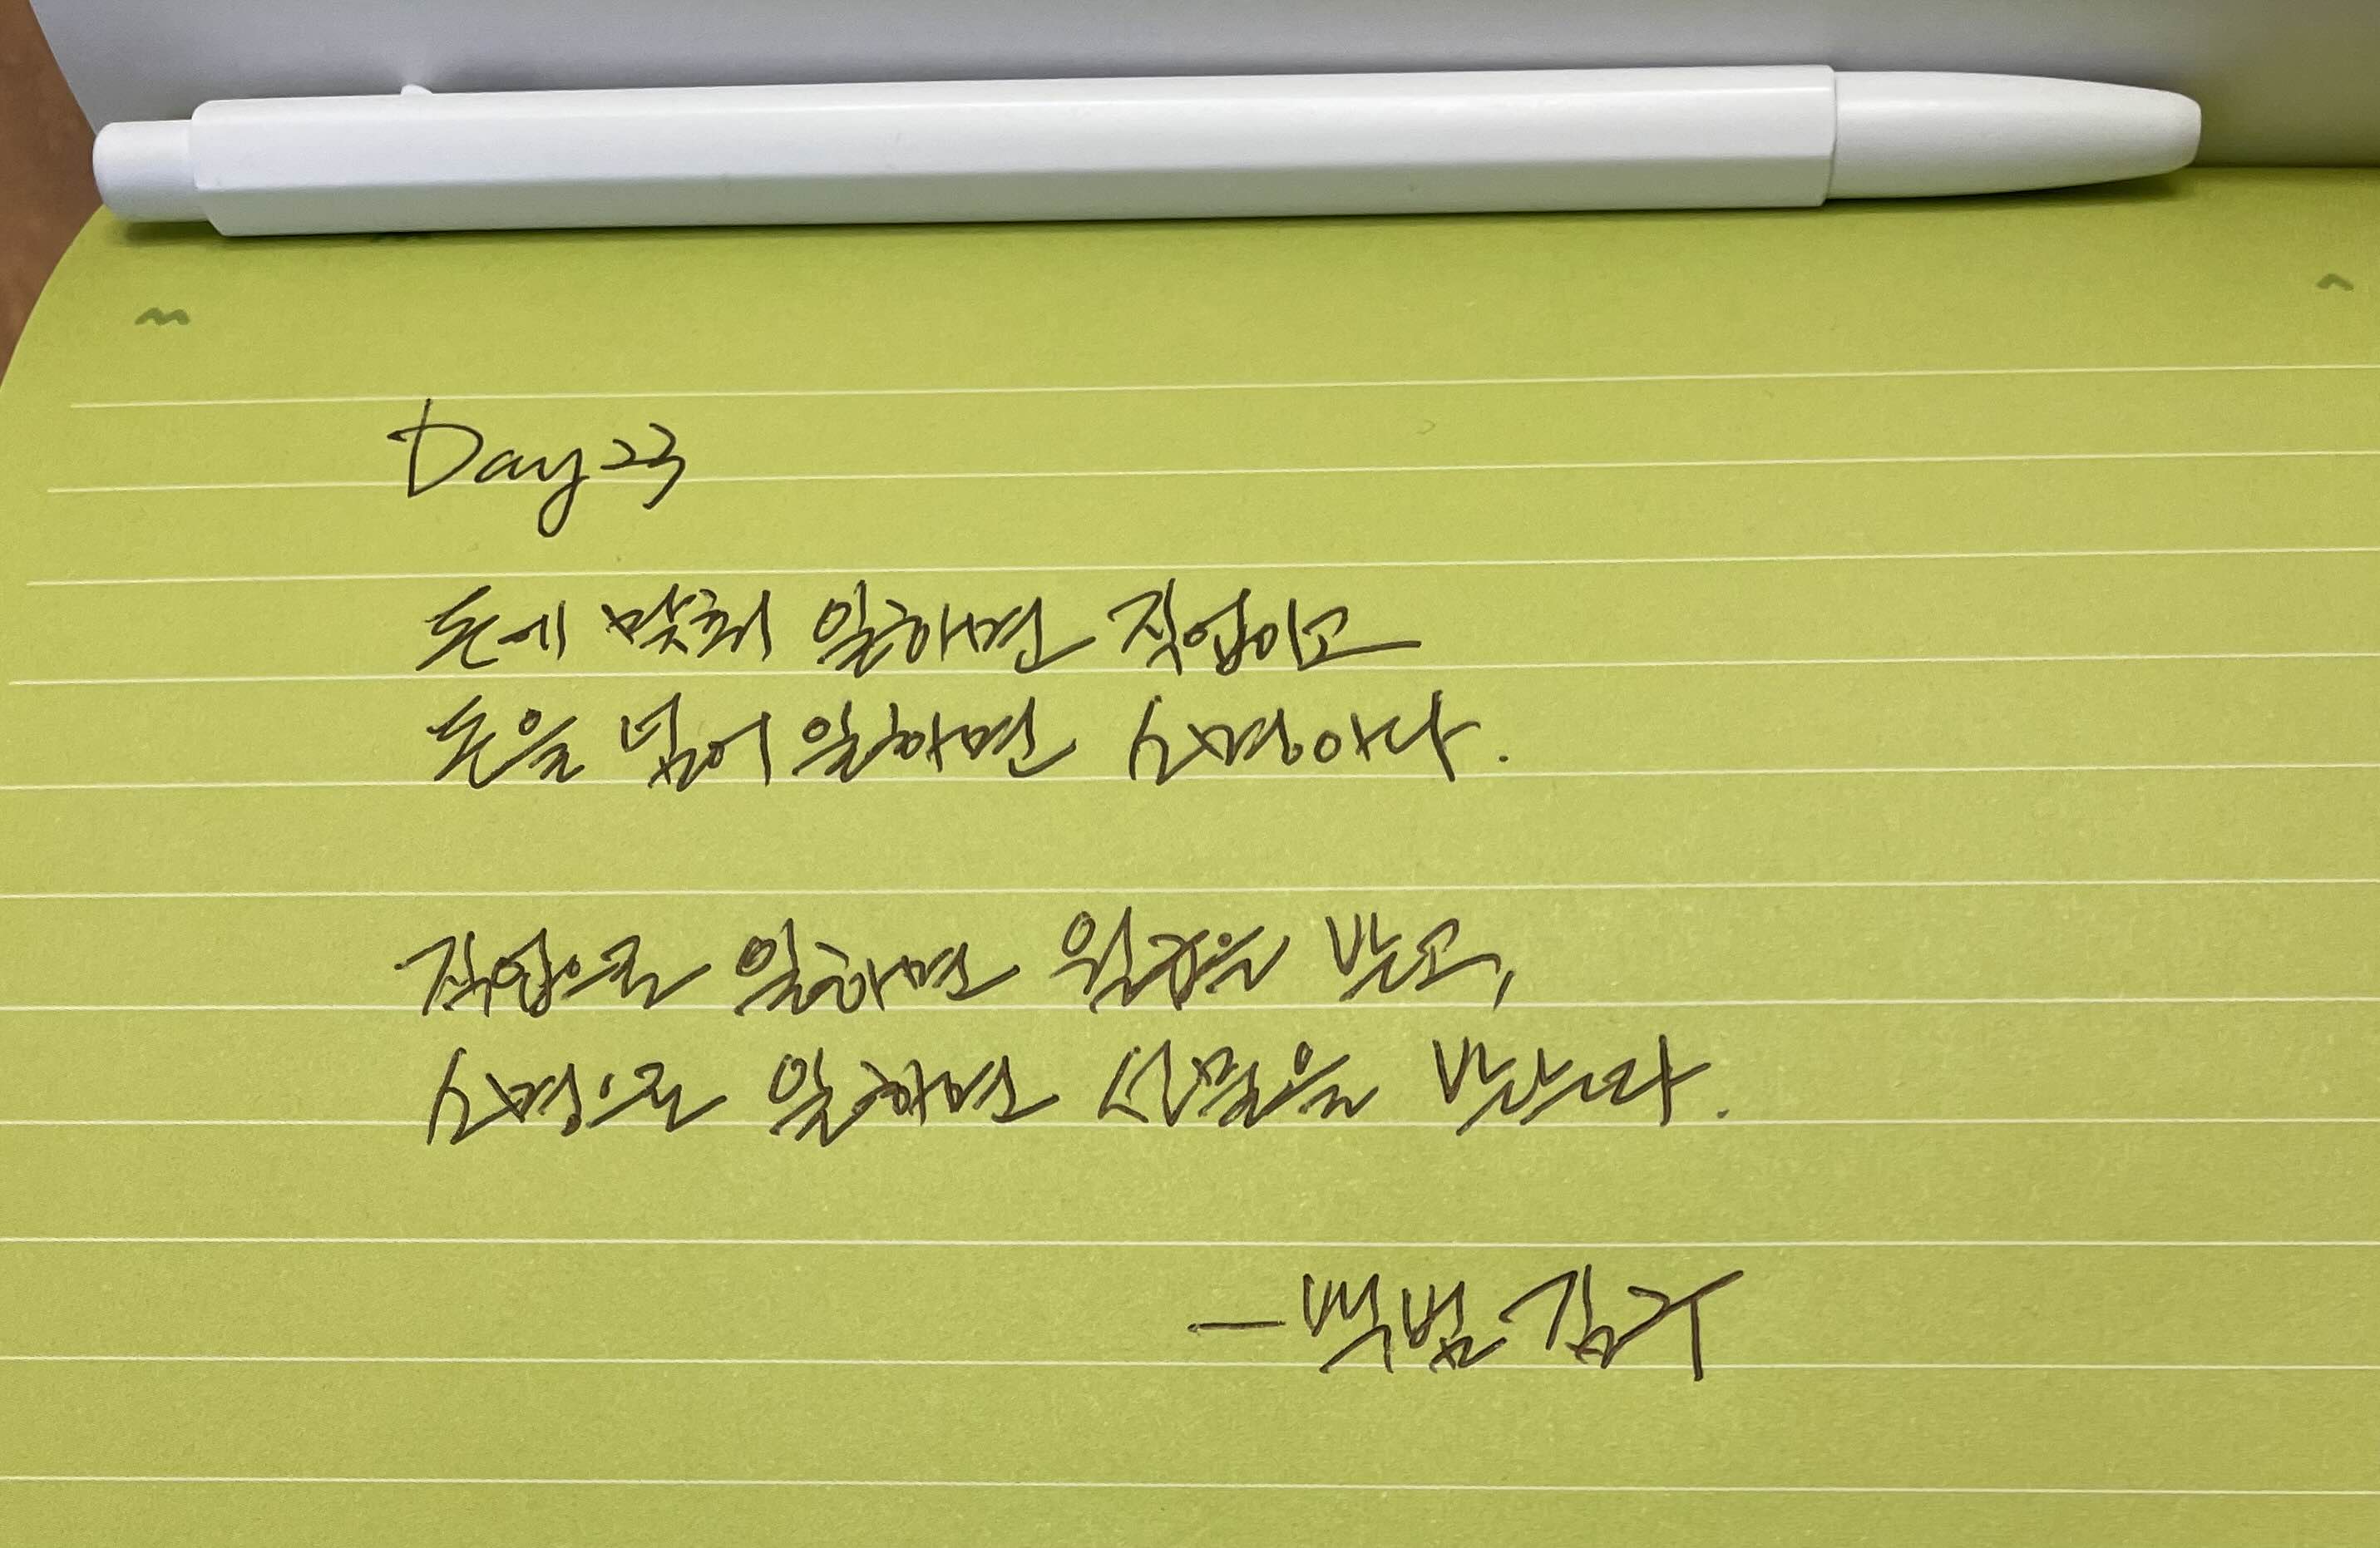 Day 23
돈에 맞춰 일하면 직업이고
돈을 넘어 일하면 소명이다.
직업으로 일하면 월급을 받고,
소명으로 일하면 선물을 받는다.
-백범 김구